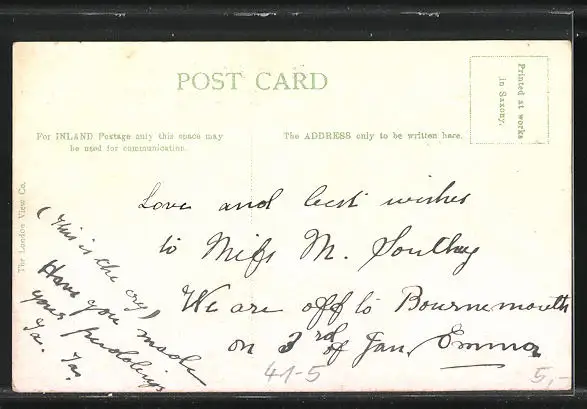 POST CARD
Printed at works
in Saxony.
For INLAND Postage only this space may
be used for communication.
The ADDRESS only to be written here.
The London View Co.
Love and best wishes
to Miss M. Southey
We are off to Bournemouth
on 3rd of Jan. Emma
(This is the cry)
Have you made
your puddings
Ta. Ta.
41-5
5,-